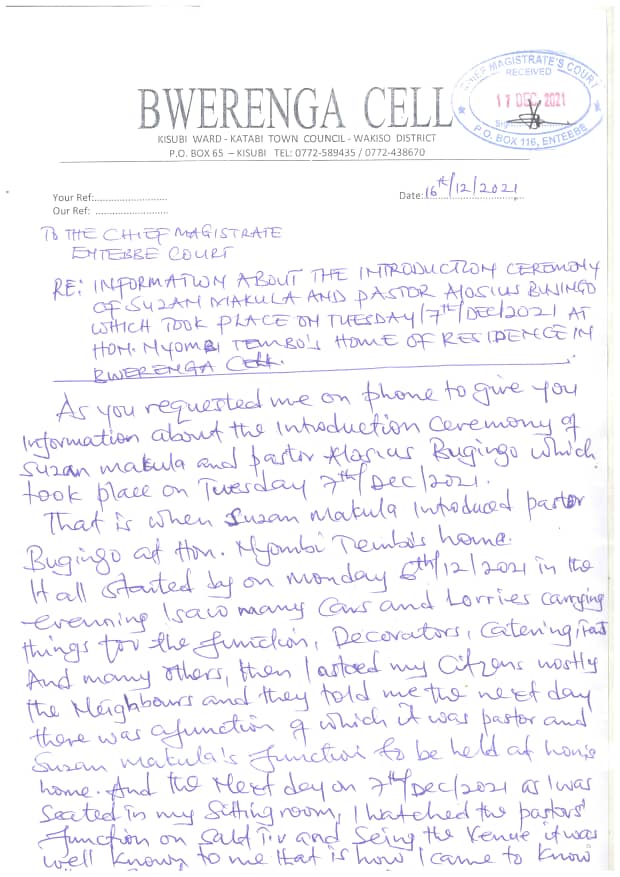 CHIEF MAGISTRATE'S COURT
RECEIVED
17 DEC 2021
P.O. BOX 116, ENTEBBE
BWERENGA CELL
KISUBI WARD - KATABI TOWN COUNCIL - WAKISO DISTRICT
P.O. BOX 65 – KISUBI TEL: 0772-589435 / 0772-438670
Your Ref:..........................
Our Ref: ..........................
Date: 16th/12/2021
TO THE CHIEF MAGISTRATE
ENTEBBE COURT
RE: INFORMATION ABOUT THE INTRODUCTION CEREMONY
OF SUZAN MAKULA AND PASTOR ALOSIUS BUNINGO
WHICH TOOK PLACE ON TUESDAY/7th/DEC/2021 AT
HON. NYOMBI TEMBO'S HOME OF RESIDENCE IN
BWERENGA CELL.
As you requested me on phone to give you
information about the Introduction Ceremony of
Suzan makula and pastor Alosius Bugingo which
took place on Tuesday 7th/Dec/2021.
That is when Suzan Makula introduced pastor
Bugingo at Hon. Nyombi Tembo's home.
It all started by on monday 6th/12/2021 in the
evenning I saw many Cars and Lorries carrying
things for the function, Decorators, Catering,
And many others, then I asked my Citizens mostly
the Neighbours and they told me the next day
there was a function of which it was pastor and
Suzan Makula's function to be held at hon's
home. And the Next day on 7th/Dec/2021 as I was
Seated in my Sitting room, I watched the pastors'
function on Salt T.v and Seing the Venue it was
well known to me that is how I came to know